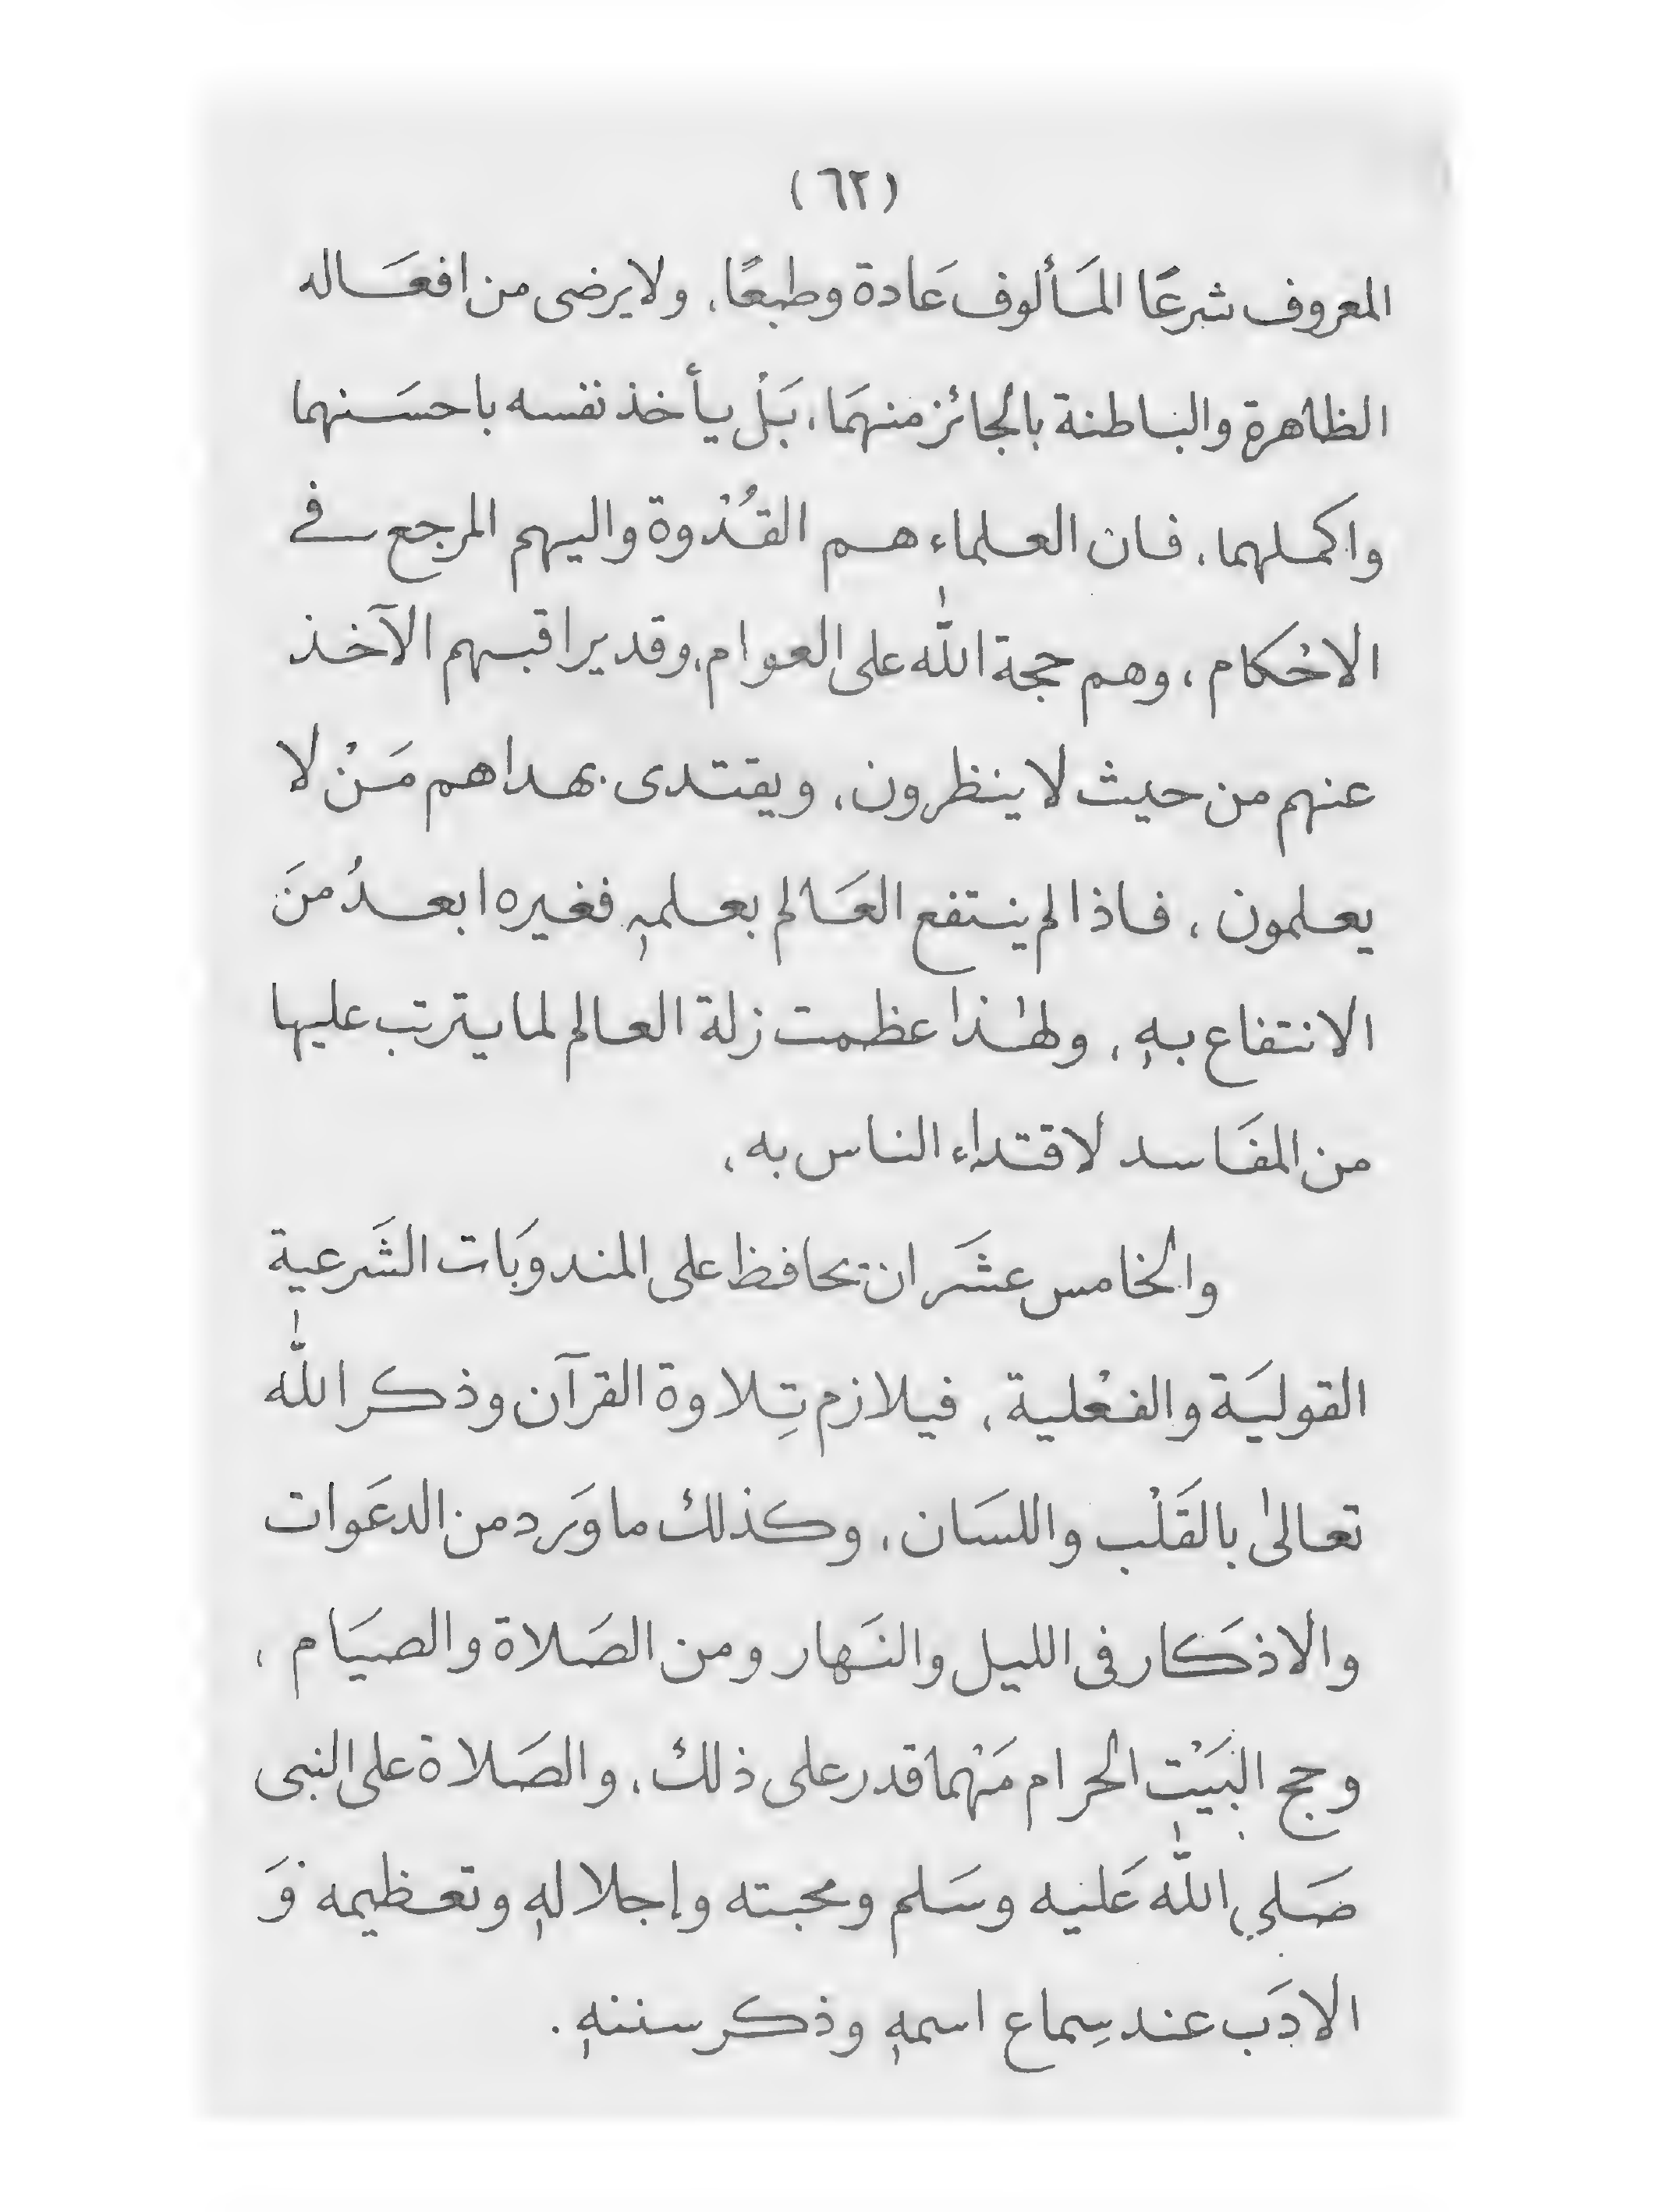 (٦٢)
المعروف شرعًا المَألوف عَادة وطبعًا، ولا يرضى من افعَاله
الظاهرة والباطنة بالجائز منهمَا، بَلْ يأخذ نفسه باحسَنهما
واكملهما، فان العلماء هم القُدْوة واليهم المرجع في
الاحْكام، وهم حجة اللّٰه على العوام، وقد يراقبهم الآخذ
عنهم من حيث لا ينظرون، ويقتدى بهداهم مَنْ لا
يعلمون، فاذا لم ينتفع العَالم بعلمهٖ فغيره ابعدُ منَ
الانتفاع بهٖ، ولهٰذا عظمت زلة العالم لما يترتب عليها
من المفَاسد لاقتداء الناس به،
والخامس عشَر ان يحافظ على المندوبَات الشَرعية
القوليَة والفعْلية، فيلازم تِلاوة القرآن وذكر اللّٰه
تعالىٰ بالقَلْب واللسَان، وكذلك ما وَرد من الدعَوات
والاذكَار فى الليل والنَهار ومن الصَلاة والصيَام،
وحج البَيْتِ الحرام مَهْما قدر على ذلك، والصَلاة على النبى
صَلي اللّٰه عَليه وسَلم ومحبته وإجلالهٖ وتعظيمه وَ
الادَب عند سِماع اسمهٖ وذكر سننهٖ.